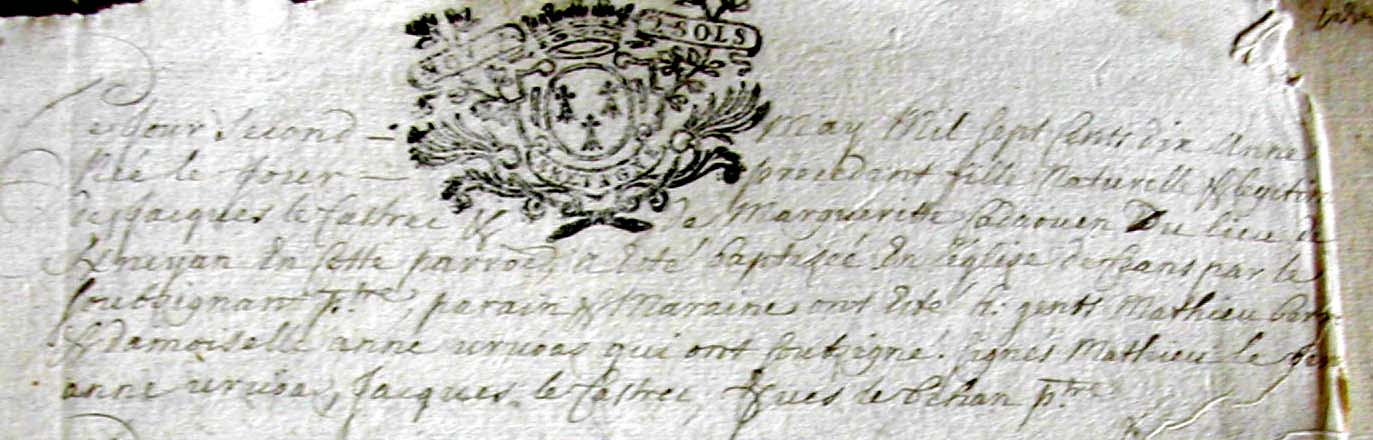 2 SOLS
BRETAGNE
Ce Jour Second May Mil Sept Cents dix Anne
Née le Jour precedant fille Naturelle & legitim
de Jacques le Castrec & de Margueritte Cadaouen Du lieu de
En Cette parroe, a Eté baptizée En l'église de ceans par le
soubsignant p.tre, parain & Maraine ont Eté h. gents Mathieu
& damoiselle anne qui ont soubsigné. Signés Mathieu le
anne, Jacques le Castrec, Yves le p.tre